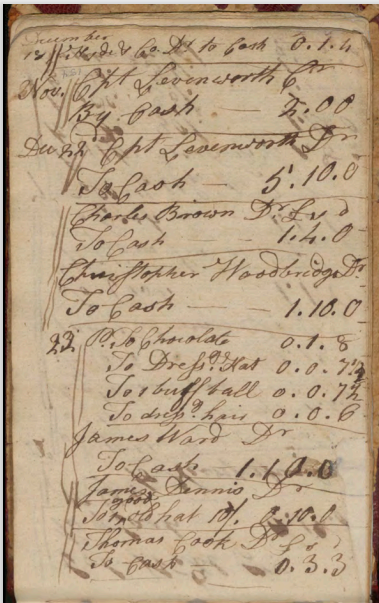 December
& Co. Dr to Cash 0.1.4
Nov. Cpt Levenworth Cr
By Cash — 5.00
Dec 22 Cpt Levenworth Dr
To Cash — 5.10.0
Charles Brown Dr £ s d
To Cash — 1.4.0
Christopher Woodbridge Dr
To Cash — 1.10.0
23 To Chocolate 0.1.8
To Dressg Hat 0.0.7½
To 1 buff ball 0.0.7½
To dressg hair 0.0.6
James Ward Dr
To Cash 1.10.0
James Dennis Dr
good
To old hat 10/ 0.10.0
Thomas Cook Dr £ s
To Cash — 0.3.3